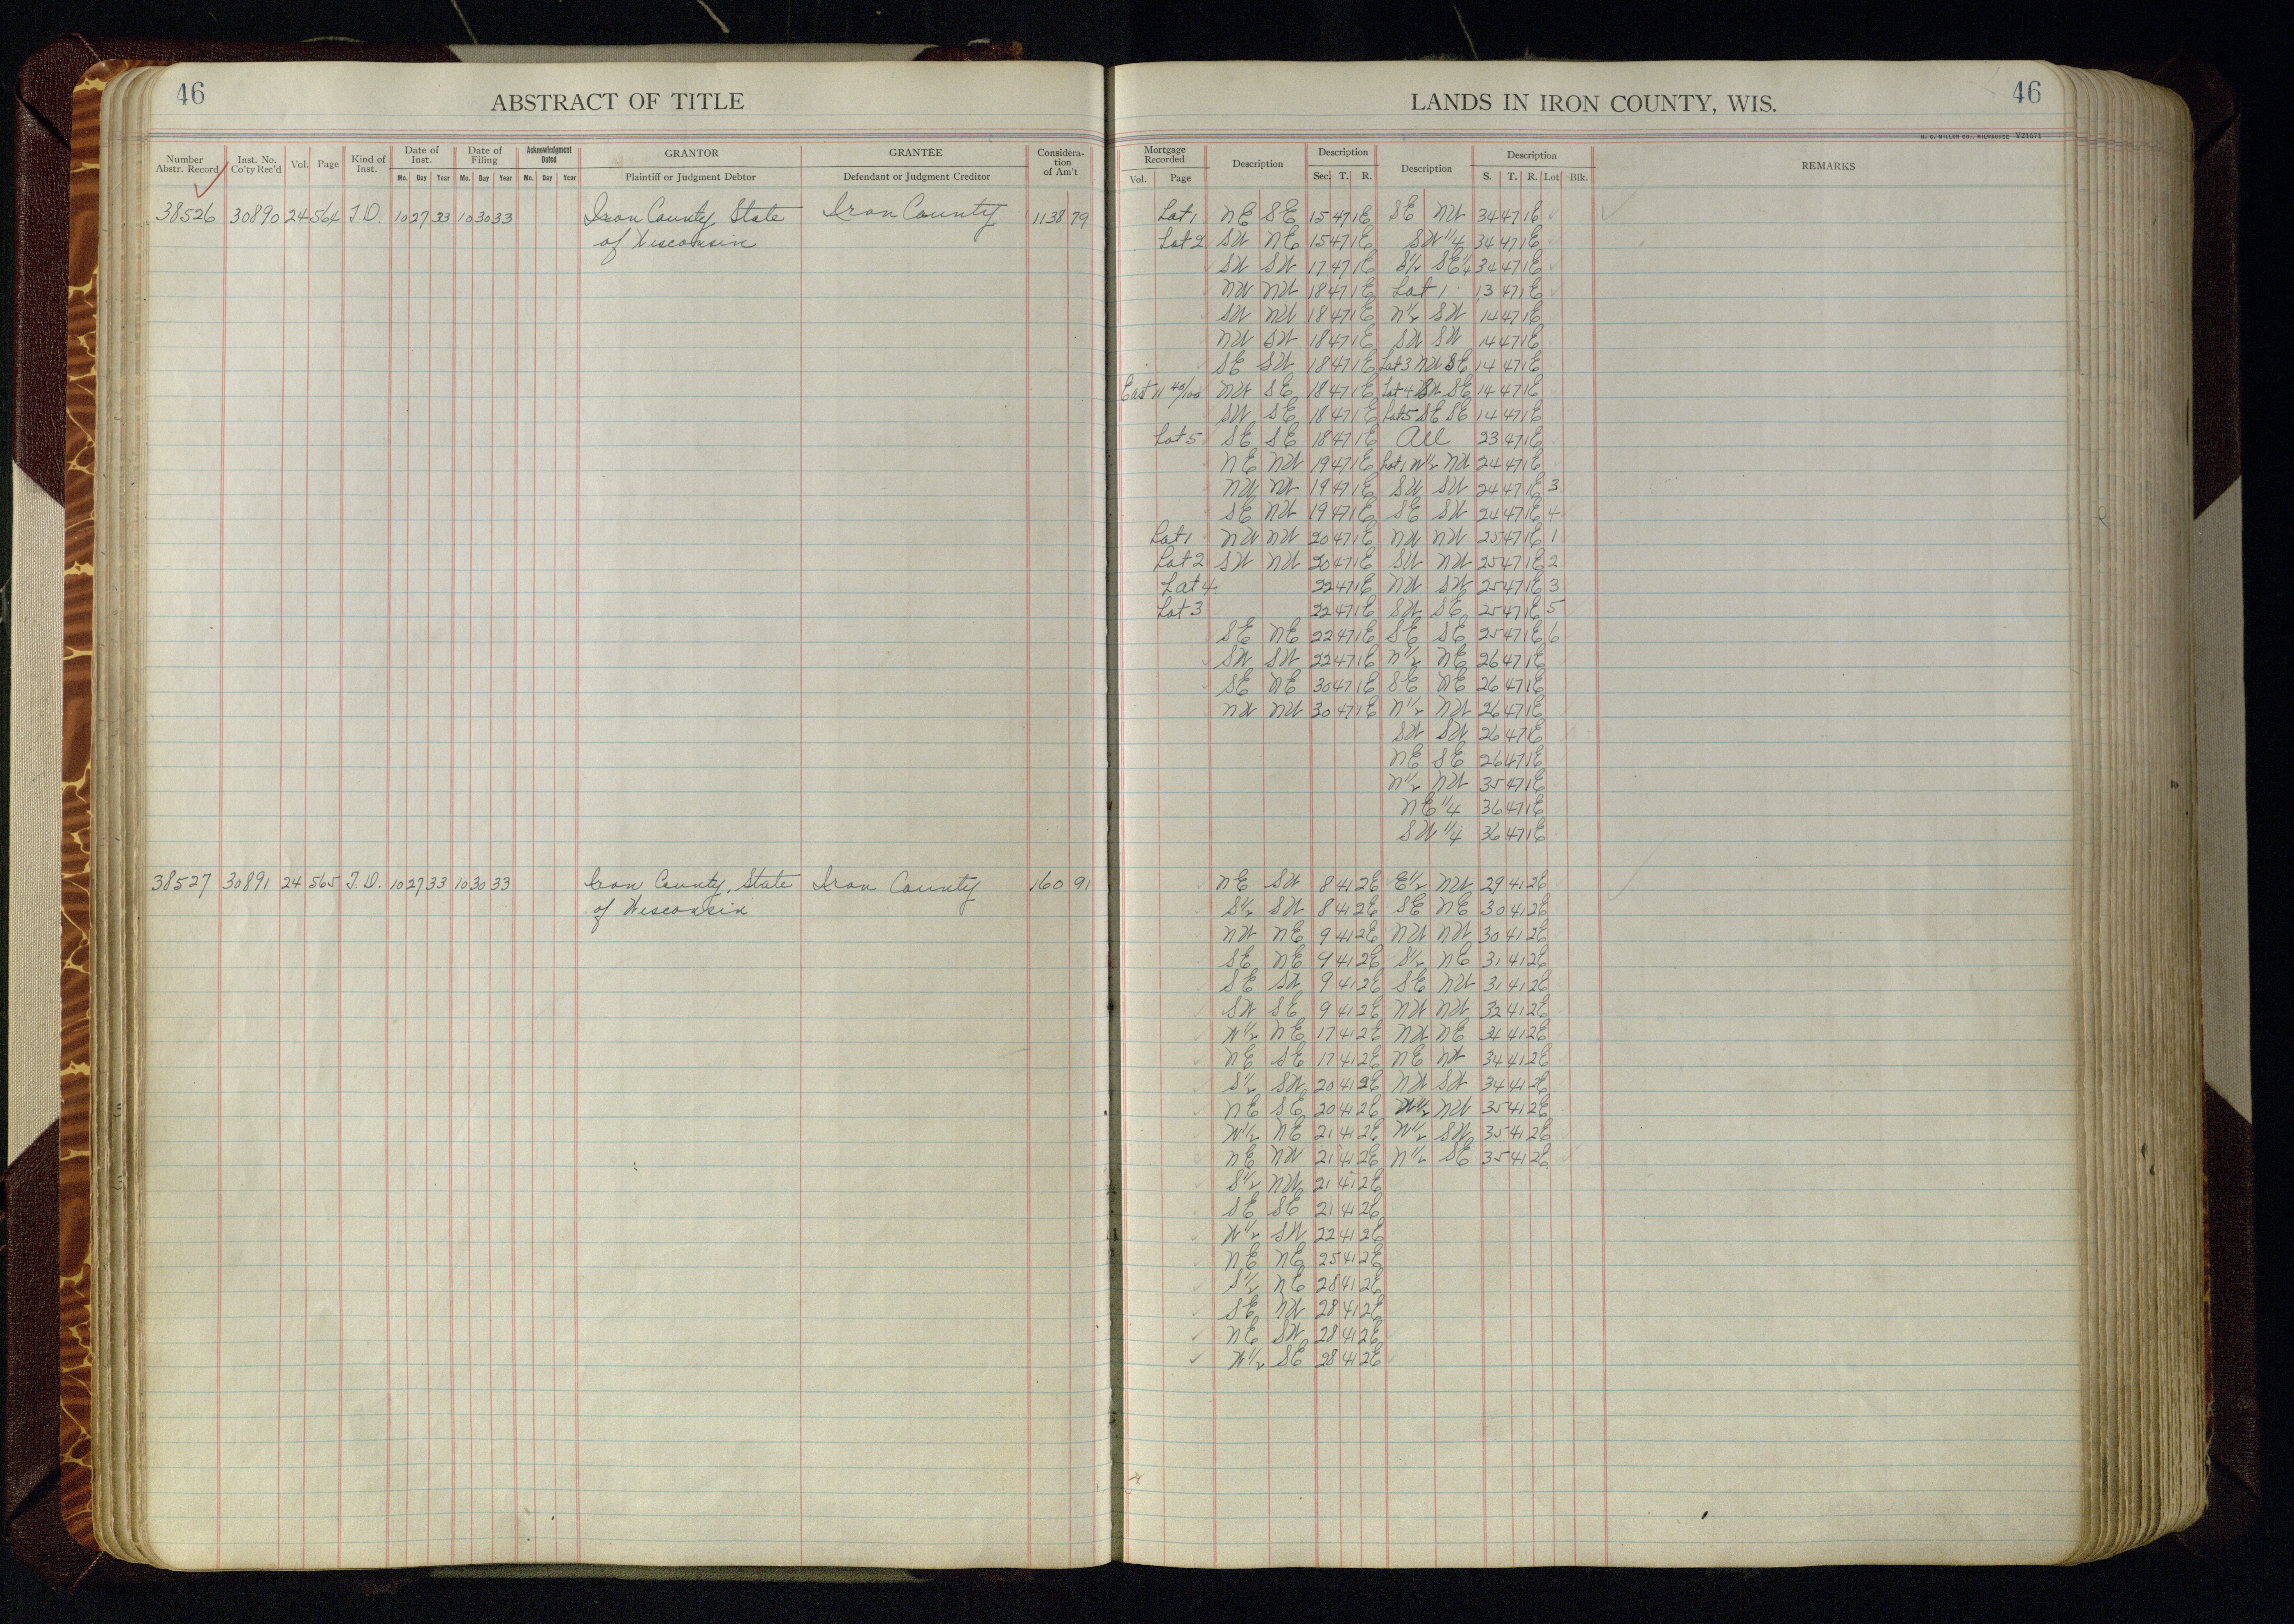 46
ABSTRACT OF TITLE
Number Abstr. Record Inst. No. Co'ty Rec'd Vol. Page Kind of Inst. Date of Inst. Mo. Day Year Date of Filing Mo. Day Year Acknowledgment Dated Mo. Day Year GRANTOR Plaintiff or Judgment Debtor GRANTEE Defendant or Judgment Creditor Considera-tion of Am't
38526 30890 24 564 T.D. 10 27 33 10 30 33 Iron County, State Iron County 1138 79
of Wisconsin
38527 30891 24 565 T.D. 10 27 33 10 30 33 Iron County, State Iron County 160 91
of Wisconsin
LANDS IN IRON COUNTY, WIS.
46
H. C. MILLER CO., MILWAUKEE V21071
Mortgage Recorded Vol. Page Description Description Sec. T. R. Description Description S. T. R. Lot Blk. REMARKS
Lot 1 NE SE 15 47 1E SE NW 34 47 1E
Lot 2 SW NE 15 47 1E SW 1/4 34 47 1E
SW SW 17 47 1E S1/2 SE1/4 34 47 1E
NW NW 18 47 1E Lot 1 13 47 1E
SW NW 18 47 1E N1/2 SW 14 47 1E
NW SW 18 47 1E SW SW 14 47 1E
SE SW 18 47 1E Lot 3 NW SE 14 47 1E
East 11 40/100 NW SE 18 47 1E Lot 4 SW SE 14 47 1E
SW SE 18 47 1E Lot 5 SE SE 14 47 1E
Lot 5 SE SE 18 47 1E All 23 47 1E
NE NW 19 47 1E Lot 1 W1/2 NW 24 47 1E
NW NW 19 47 1E SW SW 24 47 1E 3
SE NW 19 47 1E SE SW 24 47 1E 4
Lot 1 NW NW 20 47 1E NW NW 25 47 1E 1
Lot 2 SW NW 20 47 1E SW NW 25 47 1E 2
Lot 4 22 47 1E NW SW 25 47 1E 3
Lot 3 22 47 1E SW SE 25 47 1E 5
SE NE 22 47 1E SE SE 25 47 1E 6
SW SW 22 47 1E N1/2 NE 26 47 1E
SE NE 30 47 1E SE NE 26 47 1E
NW NW 30 47 1E N1/2 NW 26 47 1E
SW SW 26 47 1E
NE SE 26 47 1E
N1/2 NW 35 47 1E
NE 1/4 36 47 1E
SW 1/4 36 47 1E
NE SW 8 41 2E E1/2 NW 29 41 2E
S1/2 SW 8 41 2E SE NE 30 41 2E
NW NE 9 41 2E NW NW 30 41 2E
SE NE 9 41 2E S1/2 NE 31 41 2E
SE SW 9 41 2E SE NW 31 41 2E
SW SE 9 41 2E NW NW 32 41 2E
W1/2 NE 17 41 2E NW NE 34 41 2E
NE SE 17 41 2E NE NW 34 41 2E
S1/2 SW 20 41 2E NW SW 34 41 2E
NE SE 20 41 2E W1/2 NW 35 41 2E
W1/2 NE 21 41 2E W1/2 SW 35 41 2E
NE NW 21 41 2E N1/2 SE 35 41 2E
S1/2 NW 21 41 2E
SE SE 21 41 2E
W1/2 SW 22 41 2E
NE NE 25 41 2E
S1/2 NE 28 41 2E
SE NW 28 41 2E
NE SW 28 41 2E
W1/2 SE 28 41 2E